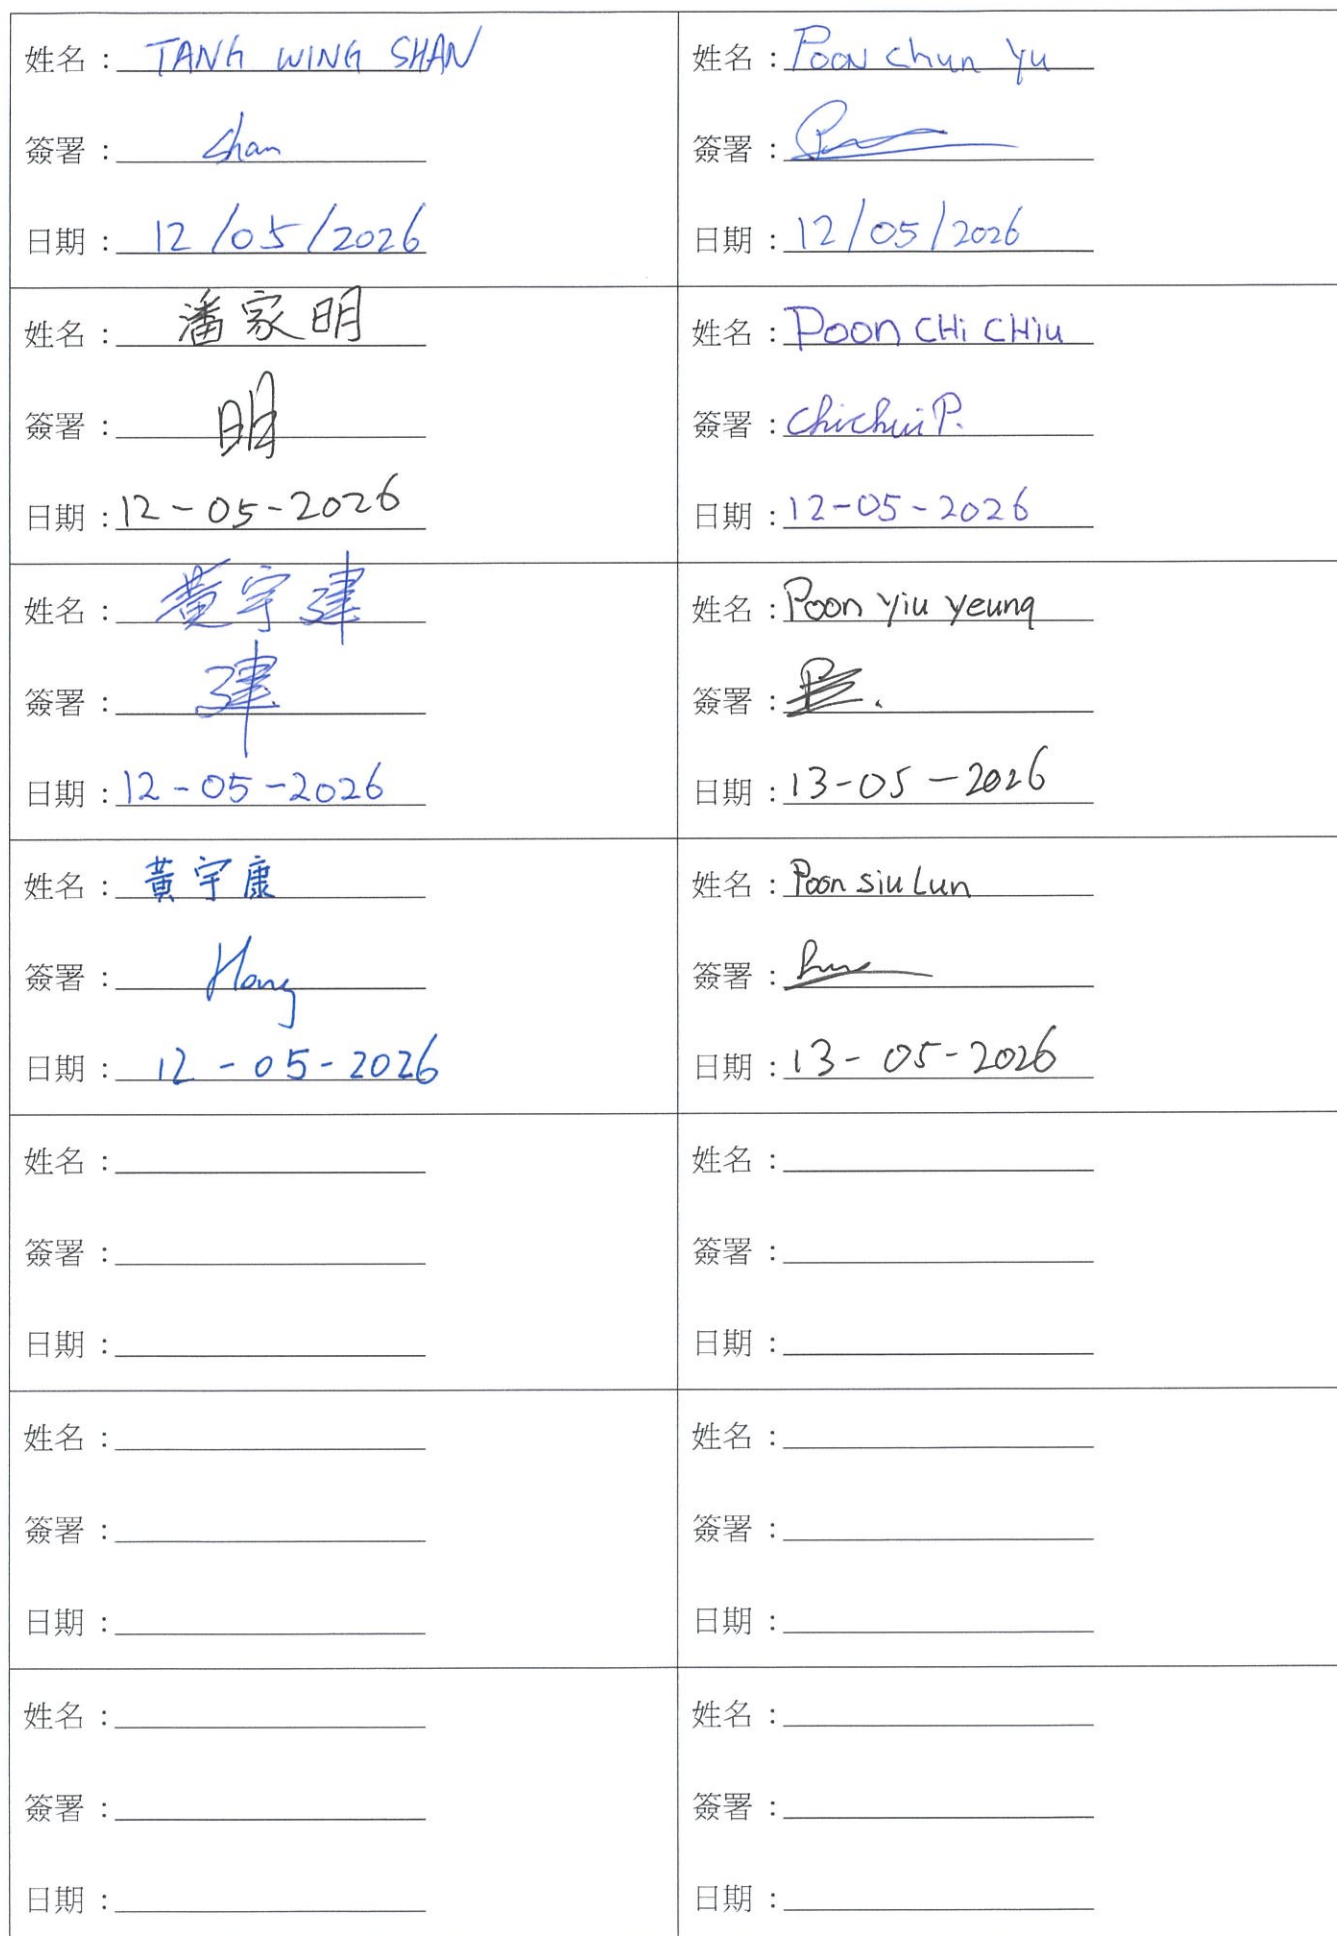 姓名：TANG WING SHAN
簽署：Shan
日期：12/05/2026
姓名：Poon Chun Yu
簽署：
日期：12/05/2026
姓名：潘家明
簽署：明
日期：12-05-2026
姓名：Poon CHi CHiu
簽署：ChichuiP.
日期：12-05-2026
姓名：黃宇建
簽署：建
日期：12-05-2026
姓名：Poon Yiu Yeung
簽署：
日期：13-05-2026
姓名：黃宇康
簽署：Hong
日期：12-05-2026
姓名：Poon Siu Lun
簽署：
日期：13-05-2026
姓名：
簽署：
日期：
姓名：
簽署：
日期：
姓名：
簽署：
日期：
姓名：
簽署：
日期：
姓名：
簽署：
日期：
姓名：
簽署：
日期：